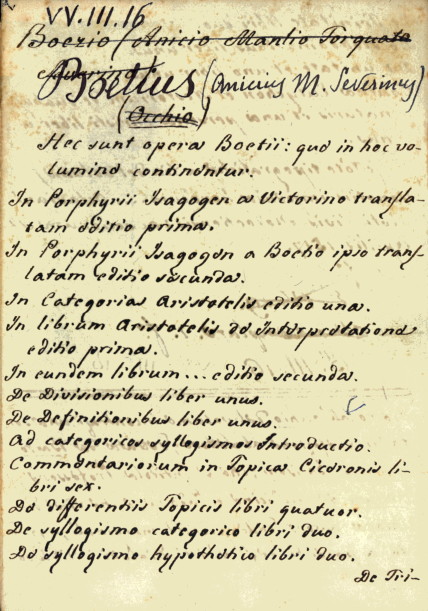 VV.III.16
Boezio (Anicio Manlio Torquato
Severino)
Boetius (Anicius M. Severinus)
(Occhio)
Hec sunt opera Boetii: quae in hoc vo-
lumine continentur.
In Porphyrii Isagogen a Victorino transla-
tam editio prima.
In Porphyrii Isagogen a Boetio ipso trans-
latam editio secunda.
In Categorias Aristotelis editio una.
In librum Aristotelis de Interpretatione
editio prima.
In eundem librum... editio secunda.
De Divisionibus liber unus.
De Definitionibus liber unus.
Ad categoricos syllogismos Introductio.
Commentariorum in Topica Ciceronis li-
bri sex.
De differentiis Topicis libri quatuor.
De syllogismo categorico libri duo.
De syllogismo hypothetico libri duo.
De Tri-